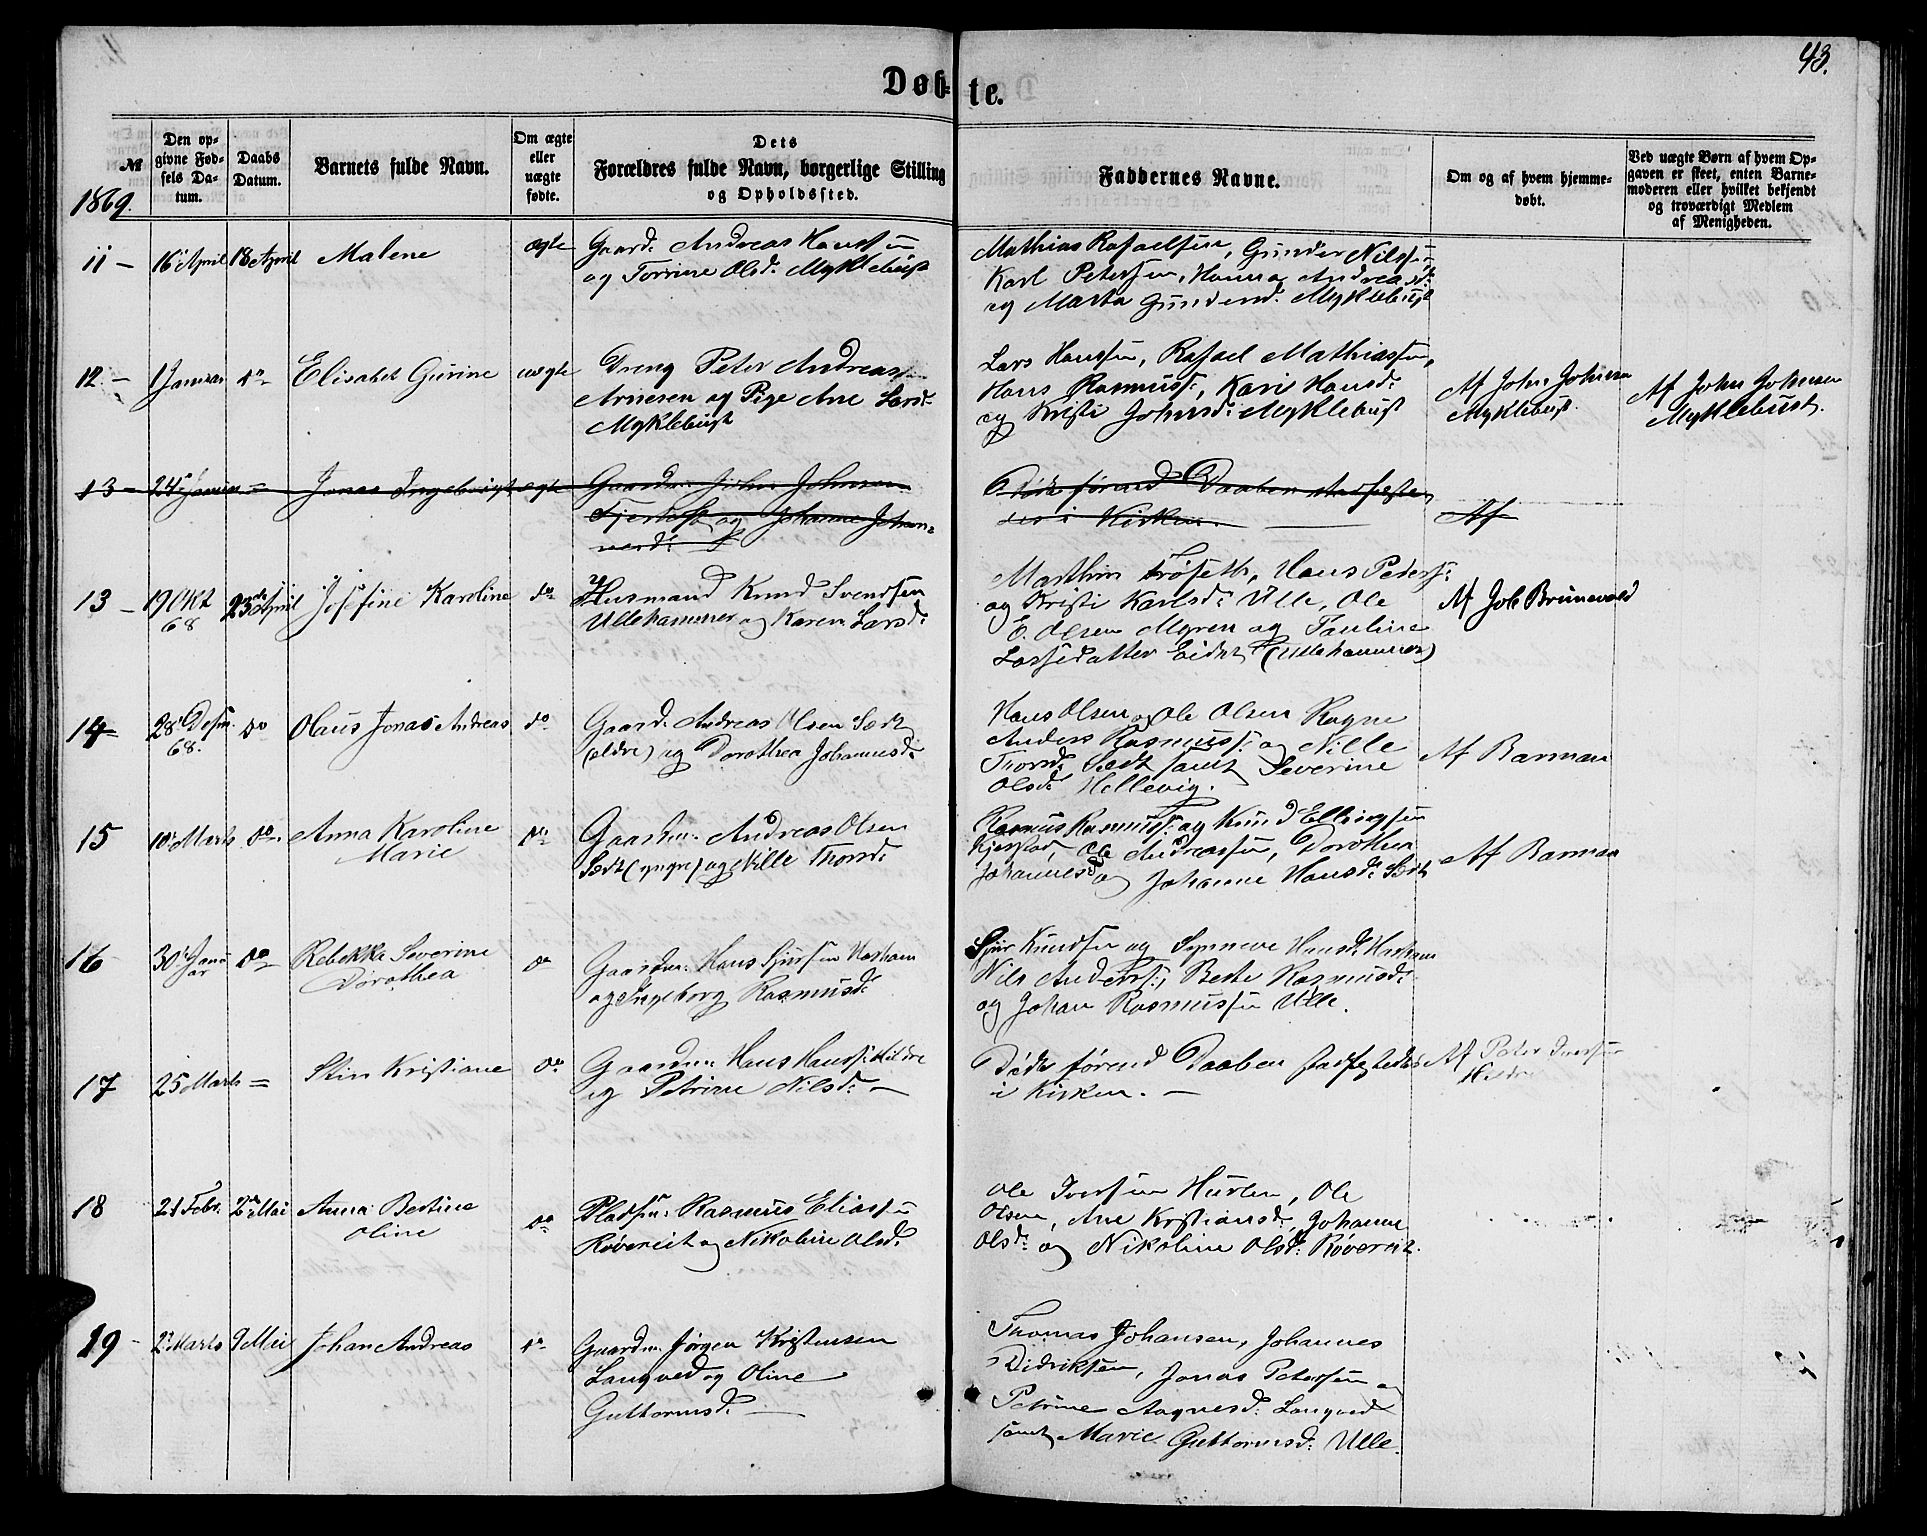 43.
Døb-
te.
No
1869.
Den op-
givne Fød-
sels Da-
tum.
Daabs
Datum.
Barnets fulde Navn.
Om ægte
eller
uægte
fødte.
Dets
Forældres fulde Navn, borgerlige Stilling
og Opholdssted.
Faddernes Navne.
Om og af hvem hjemme-
døbt.
Ved uægte Børn af hvem Op-
gaven er skeet, enten Barne-
moderen eller hvilket bekjendt
og troværdigt Medlem
af Menigheden.
11 – 16 April 18 April Malene ægte
Gaard. Andreas Hanssen
og Torrine Olsd. Myklebust
Mathias Rafaelsen, Gunder Nilssen
Karl Peterssen, Hanna Andreasd:
og Marta Gundersd: Myklebust
12. – 1 Januar do Elisabet Gurine uægte
Dreng Peter Andreas
Arnesen og Pige Ane Larsd:
Myklebust
Lars Hanssen, Rafael Mathiassen,
Hans Rasmuss:, Kari Hansd:
og Kristi Johnsd: Myklebust
Af John Johnsen
Myklebust.
Af John Johnsen
Myklebust.
13 – 24 Januar = Jonas Ingebrigt ægte
Gaardm. John Johnsen
Fjertoft og Johanne Johan-
nesd:
Døde førend Daaben stadfæste-
des i Kirken.
Af
13 – 19 Okt 68 23de April Josefine Karoline do
Husmand Knud Svendsen
Ullahammer og Karen Larsd:
Marthin Frøseth, Hans Peders:
og Kristi Karlsd: Ulle, Ole
E. Olsen Myren og Pauline
Lassedatter Eidet (Ullahammer)
Af Job Brunevold
14 28 Desm. 68. do Olaus Jonas Andreas do
Gaard. Andreas Olsen Sædt
(ældre) og Dorothea Johannesd:
Hans Olsen og Ole Olsen Rogne
Anders Rasmuss: og Nille
Thorsd: Sædt samt Severine
Olsd: Hellevig.
Af Barman
15 10 Marts do Anna Karoline
Marie do
Gaardm. Andreas Olsen
Sædt (yngre) og Nille Thorsd:
Rasmus Rasmuss: og Knud Ellingsen
Kjerstad, Ole Andreassen, Dorothea
Johannesd og Johanne Hansd: Sædt
Af Barman
16 30 Janu-
ar do Rebekka Severine
Dorothea do
Gaardm. Hans Sjurssen Harham
og Ingeborg Rasmusd:
Sjur Knudsen og Synneve Hansd: Harham
Nils Anderss:, Berte Rasmusd:
og Johan Rasmussen Ulle.
17 25 Marts = Stine Kristiane do
Gaardm: Hans Hanss: Hildre
og Petrine Nilsd: –
Døde førend Daaben stadfestedes
i Kirken. –
Af Peter Iverssen
Hildre
18 21 Febr. 2 Mai Anna Bertine
Oline do
Pladsm. Rasmus Eliassen
Røvereit og Nikoline Olsd:
Ole Iverssen Hurlen, Ole
Olsen, Ane Kristiansd:, Johanne
Olsd: og Nikoline Olsd: Røvereit.
19 – 2 Marts 9 Mai Johan Andreas do
Gaardm. Jørgen Kristensen
Longved og Oline
Guttormsd. –
Thomas Johansen, Johannes
Didriksen, Jonas Peterssen og
Petrine Aagnesd: Longved
samt Marie Guttormsd: Ulle.